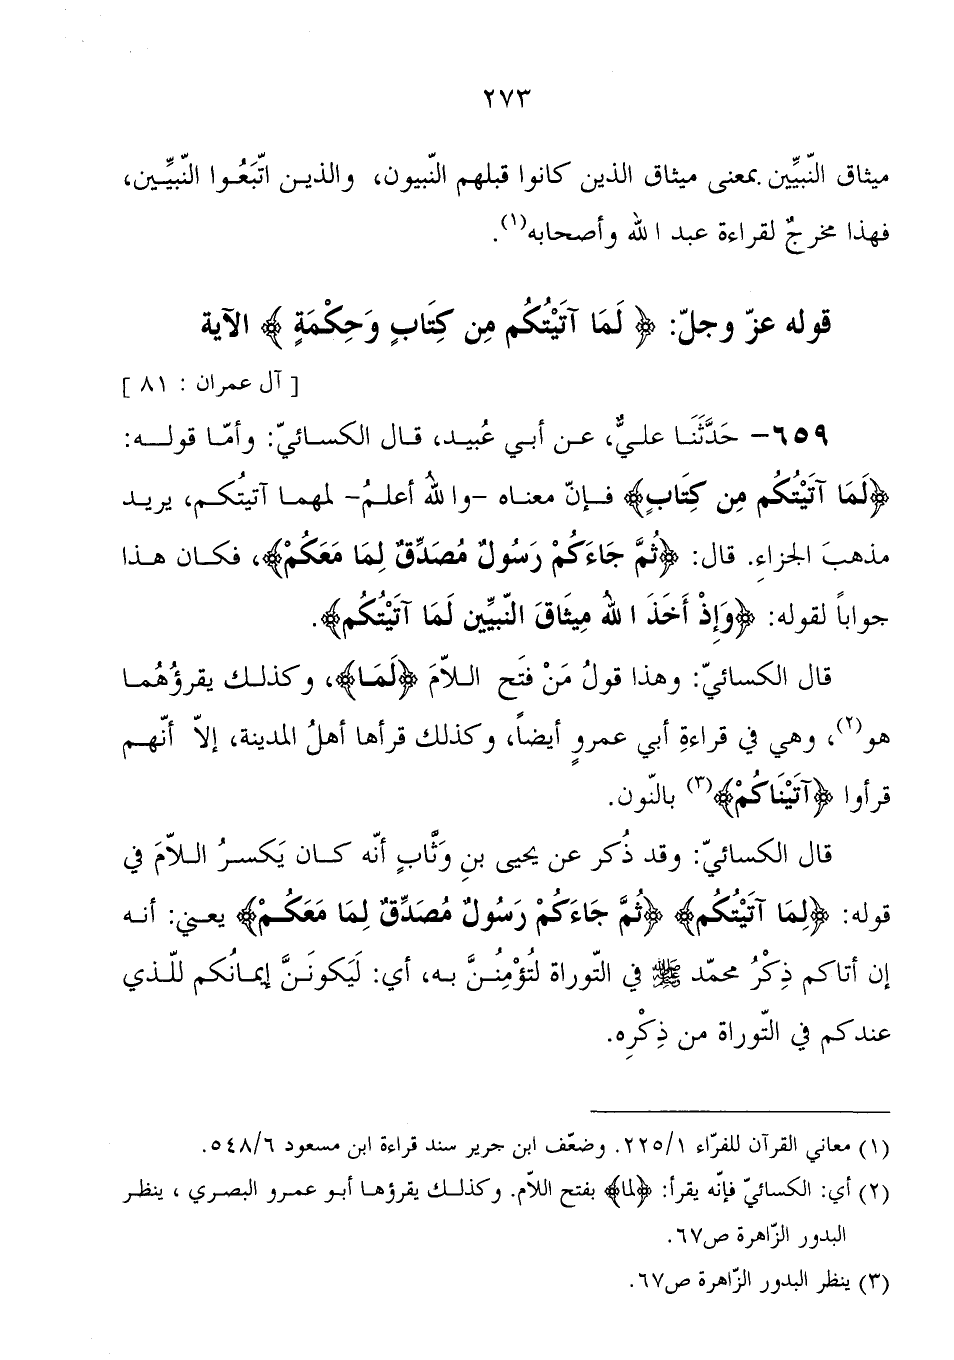 ٢٧٣
ميثاق النّبيِّين بمعنى ميثاق الذين كانوا قبلهم النّبيون، والذين اتّبَعُوا النّبيِّين،
فهذا مخرجٌ لقراءة عبد الله وأصحابه(١).
قوله عزّ وجلّ: ﴿ لَمَا آتَيْتُكُم مِن كِتَابٍ وَحِكْمَةٍ ﴾ الآية
[ آل عمران : ٨١ ]
٦٥٩– حَدَّثَنَا عليٌّ، عن أبي عُبيد، قال الكسائيّ: وأمّا قوله:
﴿لَمَا آتَيْتُكُم مِن كِتَابٍ﴾ فإنّ معناه -والله أعلمُ- لمهما آتيتُكم، يريد
مذهبَ الجزاءِ. قال: ﴿ثُمَّ جَاءَكُمْ رَسُولٌ مُصَدِّقٌ لِمَا مَعَكُمْ﴾، فكان هذا
جواباً لقوله: ﴿وَإِذْ أَخَذَ الله مِيثَاقَ النَّبِيِّين لَمَا آتَيْتُكُم﴾.
قال الكسائيّ: وهذا قولُ مَنْ فَتَح اللاّمَ ﴿لَمَا﴾، وكذلك يقرؤُهُما
هو(٢)، وهي في قراءةِ أبي عمروٍ أيضاً، وكذلك قرأها أهلُ المدينة، إلاّ أنّهم
قرأوا ﴿آتَيْنَاكُمْ﴾(٣) بالنّون.
قال الكسائيّ: وقد ذُكر عن يحيى بنِ وَثَّابٍ أنّه كان يَكسرُ اللاّمَ في
قوله: ﴿لِمَا آتَيْتُكُم﴾ ﴿ثُمَّ جَاءَكُمْ رَسُولٌ مُصَدِّقٌ لِمَا مَعَكُمْ﴾ يعني: أنه
إن أتاكم ذِكْرُ محمّد ﷺ في التّوراة لتُؤمِنُنَّ به، أي: لَيَكونَنَّ إيمانُكم للّذي
عندكم في التّوراة من ذِكْرِه.
(١) معاني القرآن للفرّاء ٢٢٥/١. وضعّف ابن جرير سند قراءة ابن مسعود ٥٤٨/٦.
(٢) أي: الكسائيّ فإنّه يقرأ: ﴿لما﴾ بفتح اللاّم. وكذلك يقرؤها أبو عمرو البصري ، ينظر
البدور الزّاهرة ص٦٧.
(٣) ينظر البدور الزّاهرة ص٦٧.